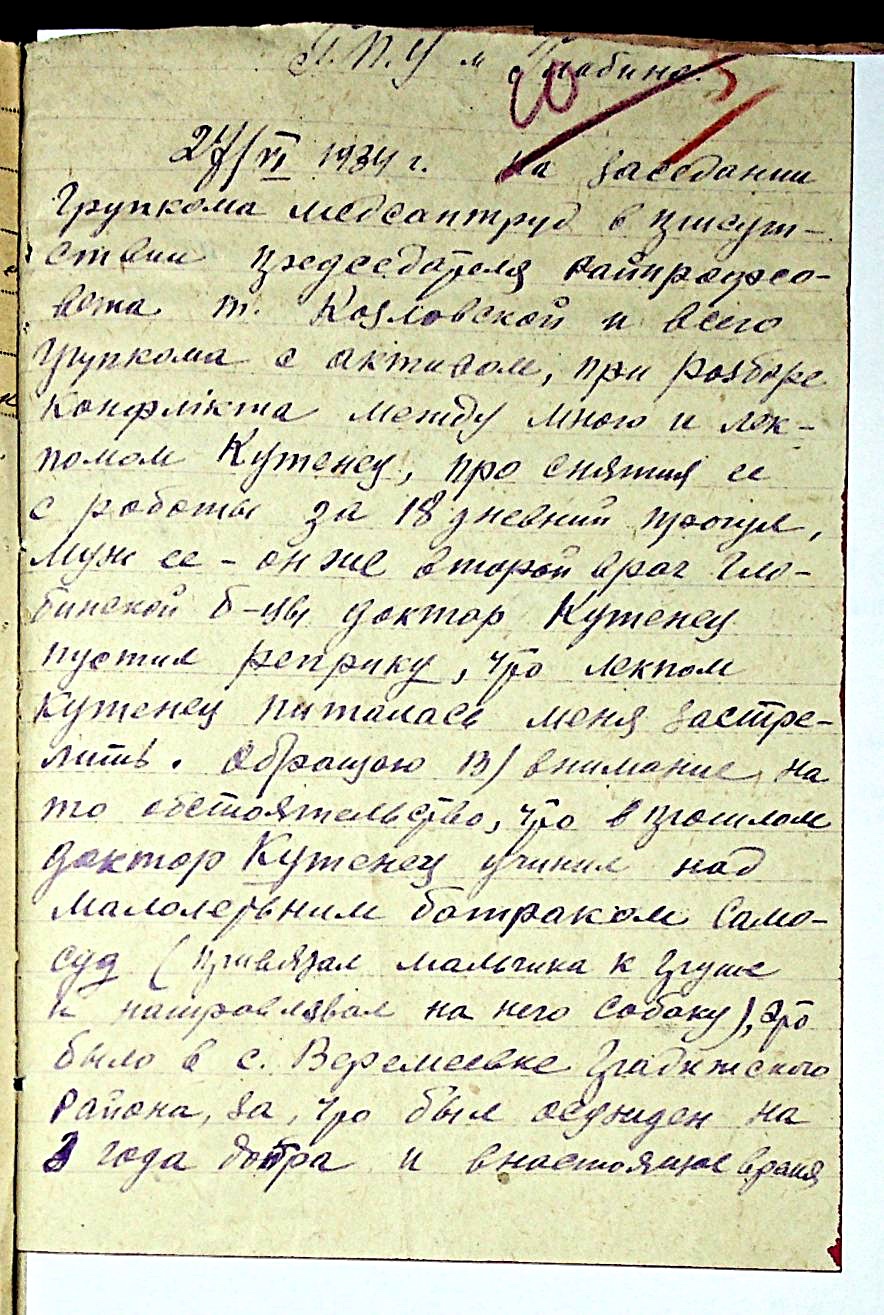 Г.П.У м Глобино.
24/VI 1934 г. На заседании
Групкома медсантруд в присут-
ствии председателя райпрофсо-
вета т. Козловской и всего
групкома с активом, при разборе
конфлікта между мною и лек-
помом Кутенец, про снятия ее
с работы за 18 дневний прогул,
муж ее - он же второй врач Гло-
бинской б-цы доктор Кутенец
пустил реприку, что лекпом
Кутенец питалась меня застре-
лить. Обращаю внимание на
то обстоятельство, что в прошлом
доктор Кутенец учинил над
малолетьним батраком само-
суд (привязал мальчика к груше
и натровлявал на него собаку), это
было в с. Веремеевке Градижского
района, за, что был осужден на
года допра и внастоящое время